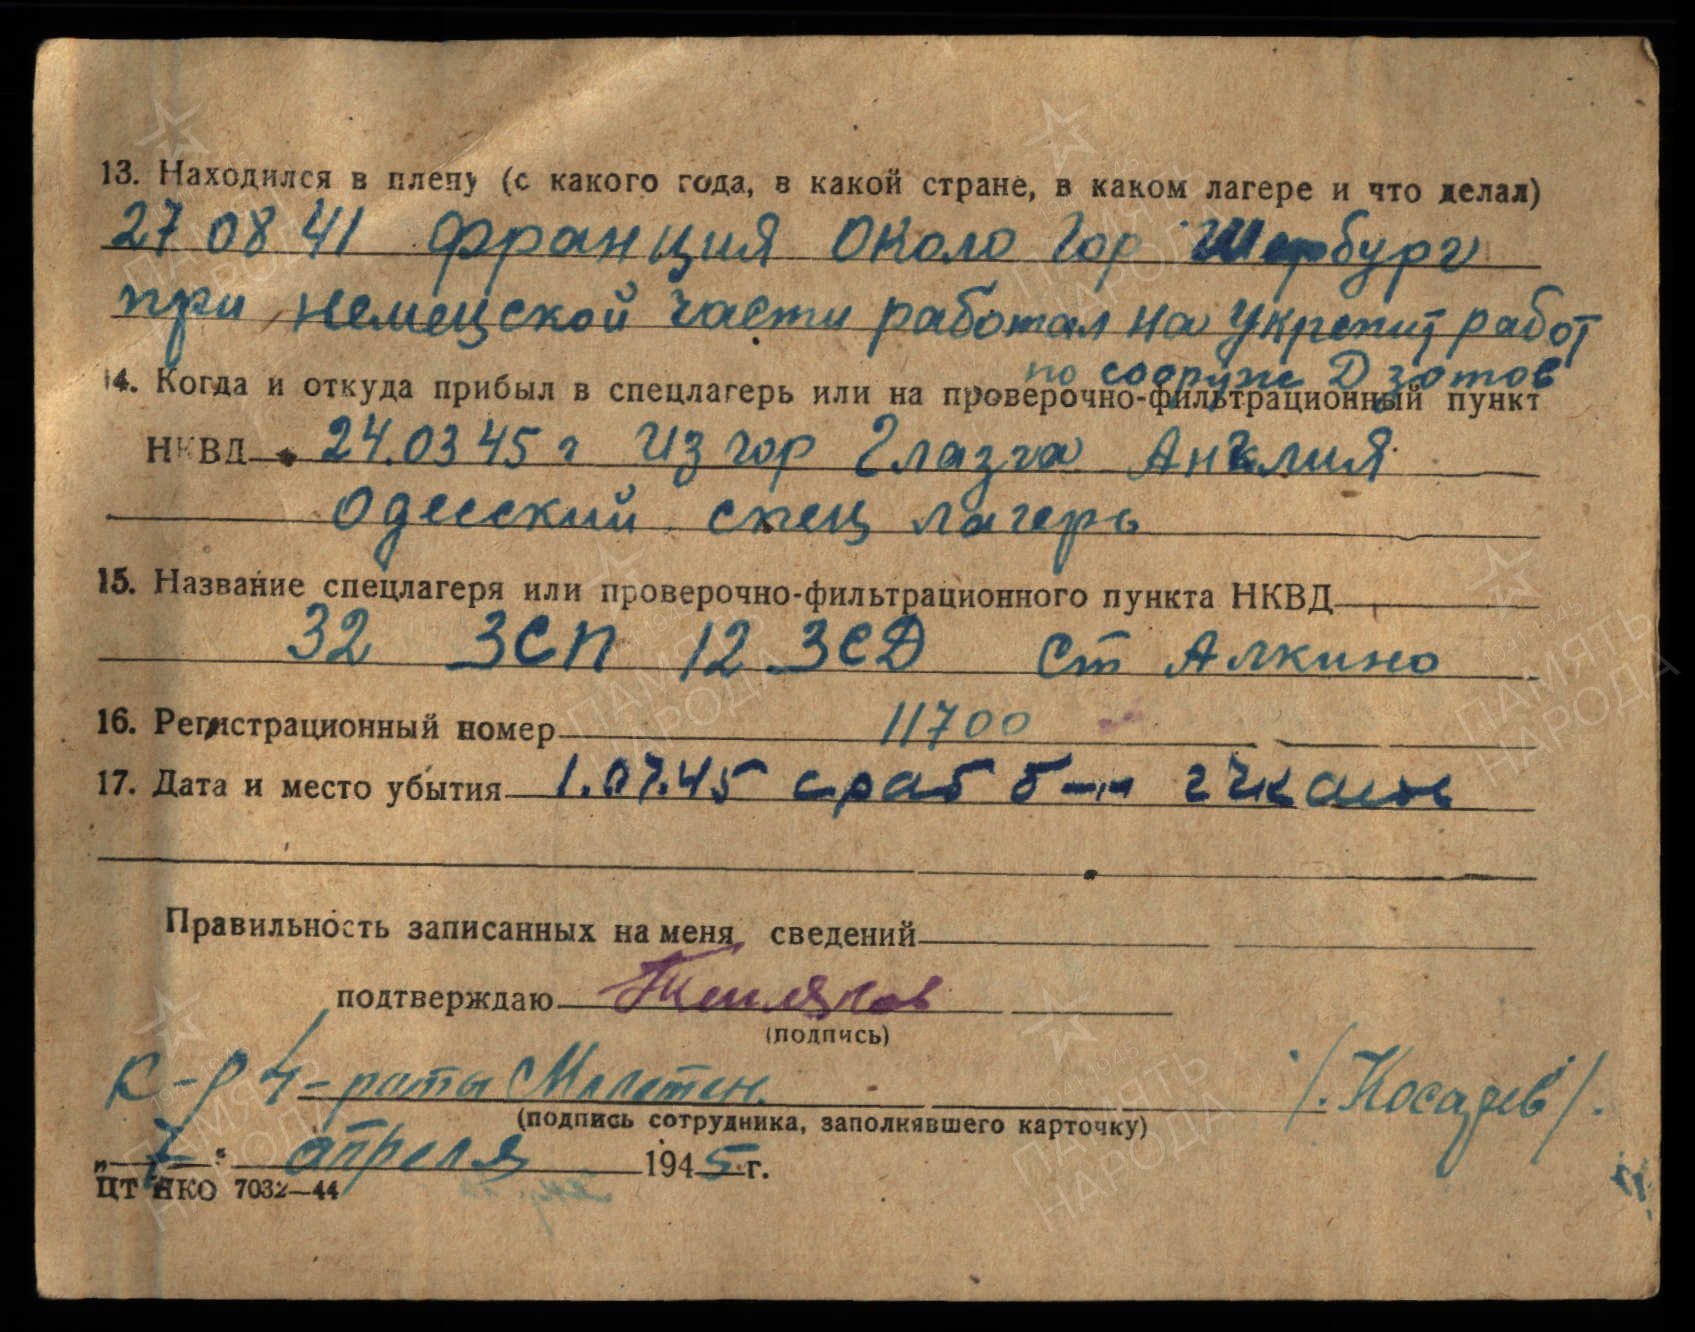 13. Находился в плену (с какого года, в какой стране, в каком лагере и что делал)
27 08 41 Франция около гор Шербург
при немецской части работал на укрепит работ
по сооруж Дзотов
14. Когда и откуда прибыл в спецлагерь или на проверочно-фильтрационный пункт
НКВД 24.03 45 г из гор Глазга Англия
Одесский спец лагерь
15. Название спецлагеря или проверочно-фильтрационного пункта НКВД
32 ЗСП 12 ЗСД ст Алкино
16. Регистрационный номер 11700
17. Дата и место убытия 1.07.45 с раб б-н
Правильность записанных на меня сведений
подтверждаю
(подпись)
К-р 4-роты /.Косарев/.
(подпись сотрудника, заполнявшего карточку)
„ 7 “ апреля 1945 г.
ЦТ НКО 7032—44
ПАМЯТЬ НАРОДА